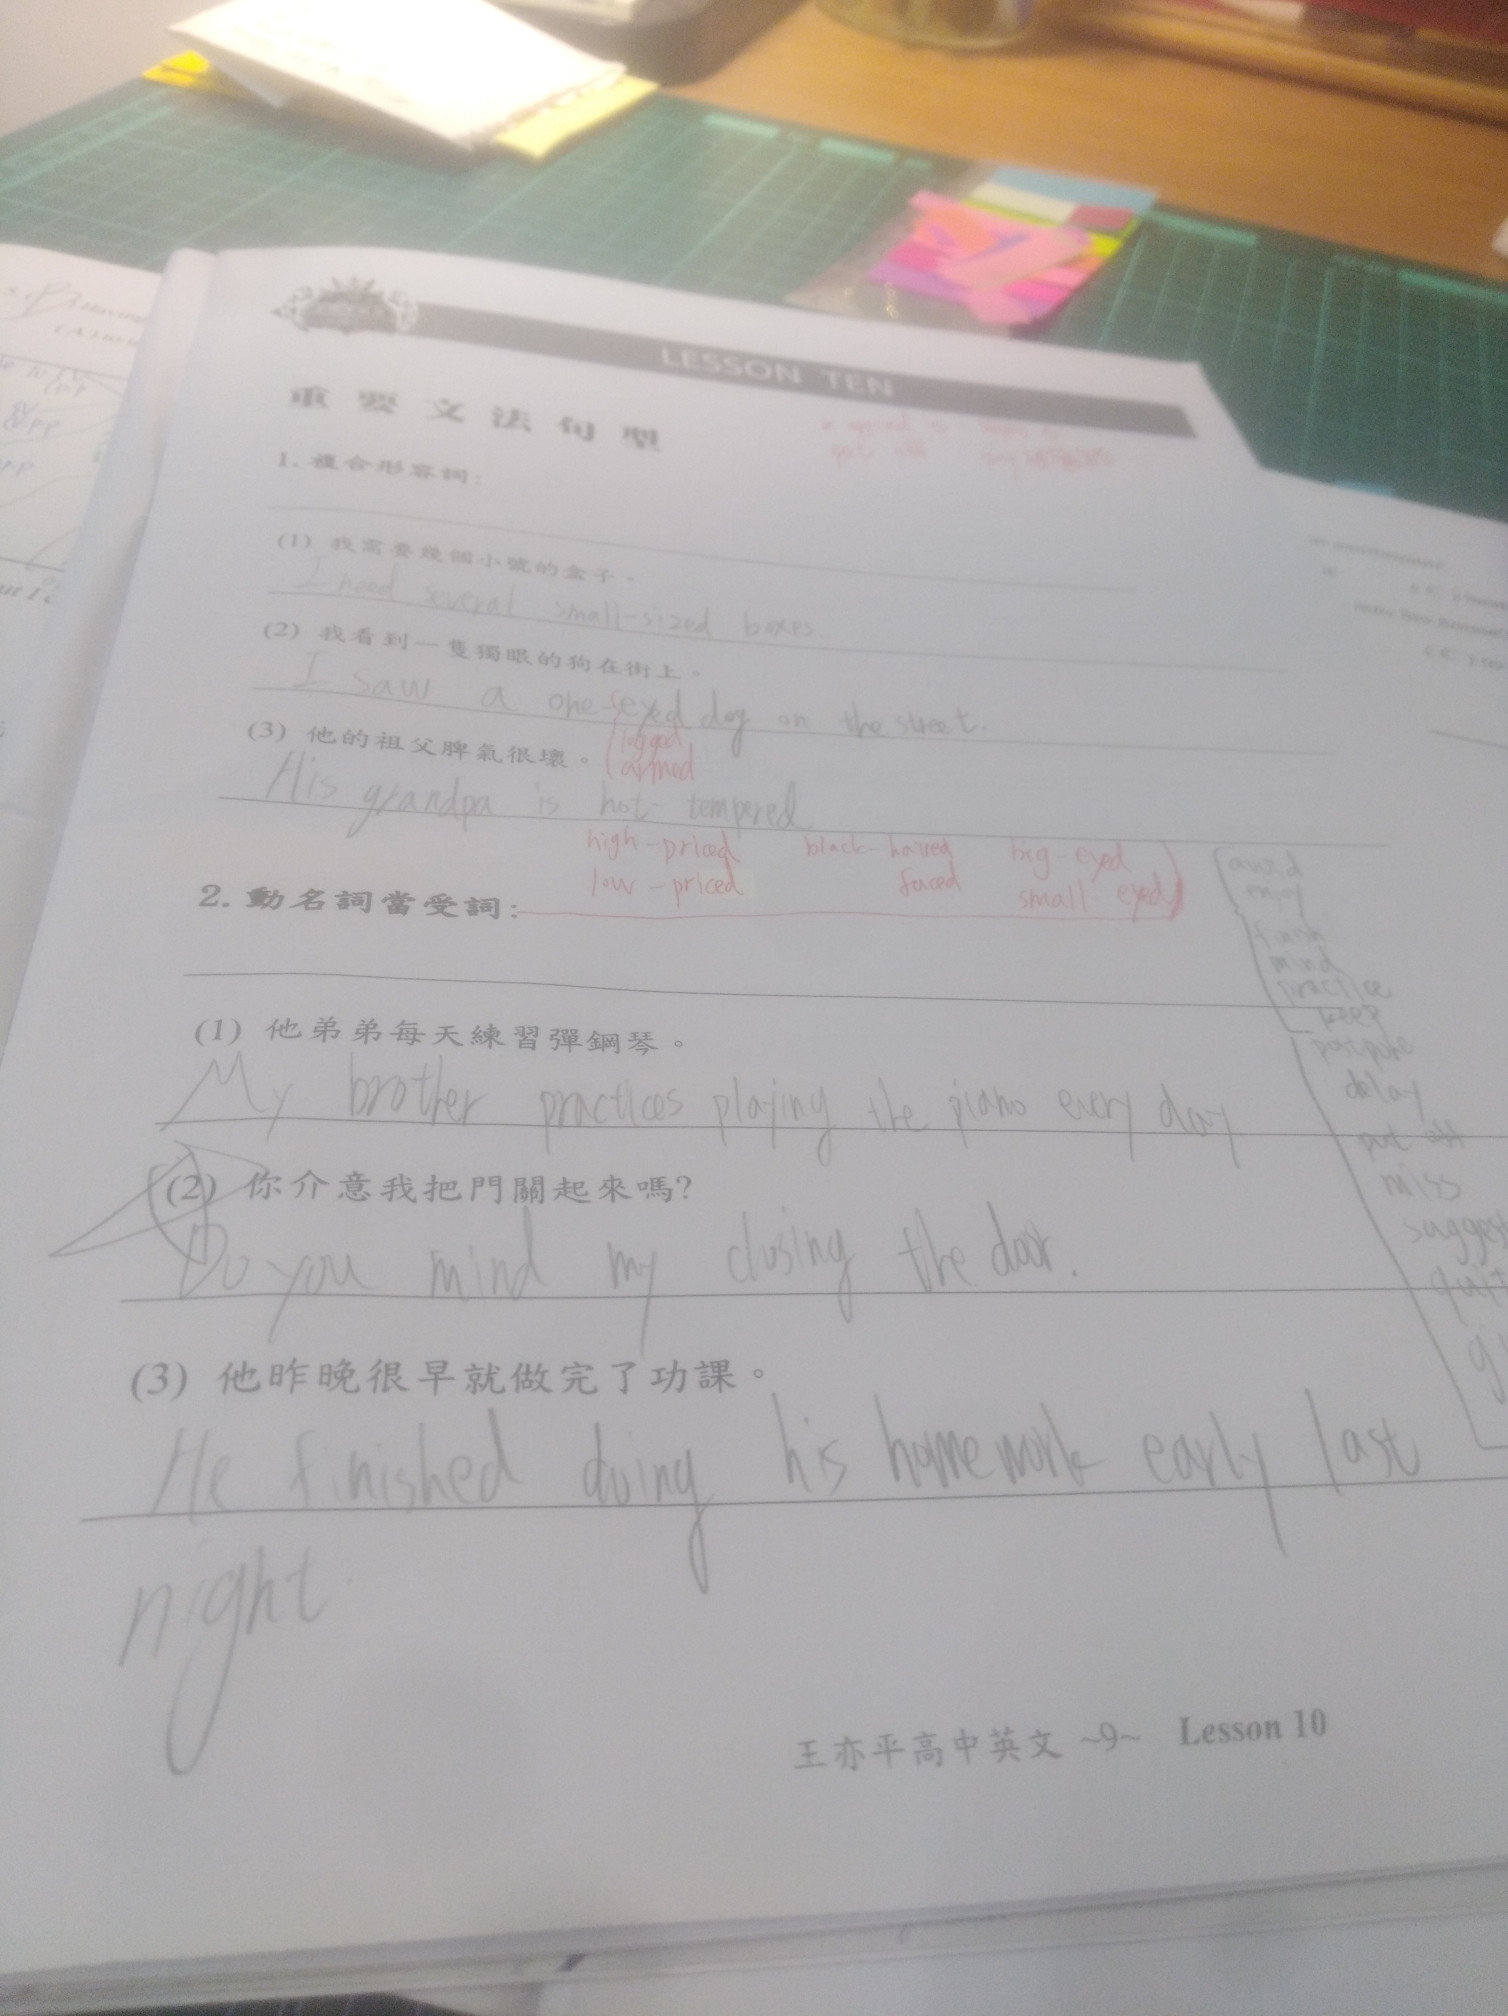 LESSON TEN
重要文法句型
1. 複合形容詞:
(1) 我需要幾個小號的盒子。
I need several small-sized boxes.
(2) 我看到一隻獨眼的狗在街上。
I saw a one-eyed dog on the street.
legged
armed
(3) 他的祖父脾氣很壞。
His grandpa is hot-tempered
high-priced black-haired big-eyed
low-priced faced small-eyed
2. 動名詞當受詞:
avoid
enjoy
finish
mind
practice
keep
postpone
delay
put off
miss
suggest
quit
(1) 他弟弟每天練習彈鋼琴。
My brother practices playing the piano every day
(2) 你介意我把門關起來嗎?
Do you mind my closing the door.
(3) 他昨晚很早就做完了功課。
He finished doing his homework early last
night.
王亦平高中英文 ~9~ Lesson 10